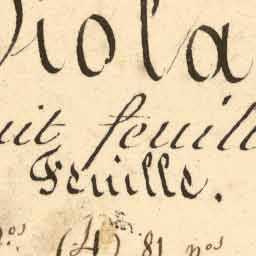 Viola
uit feuill
Feuille.
ºˢ (4) 81 nºˢ